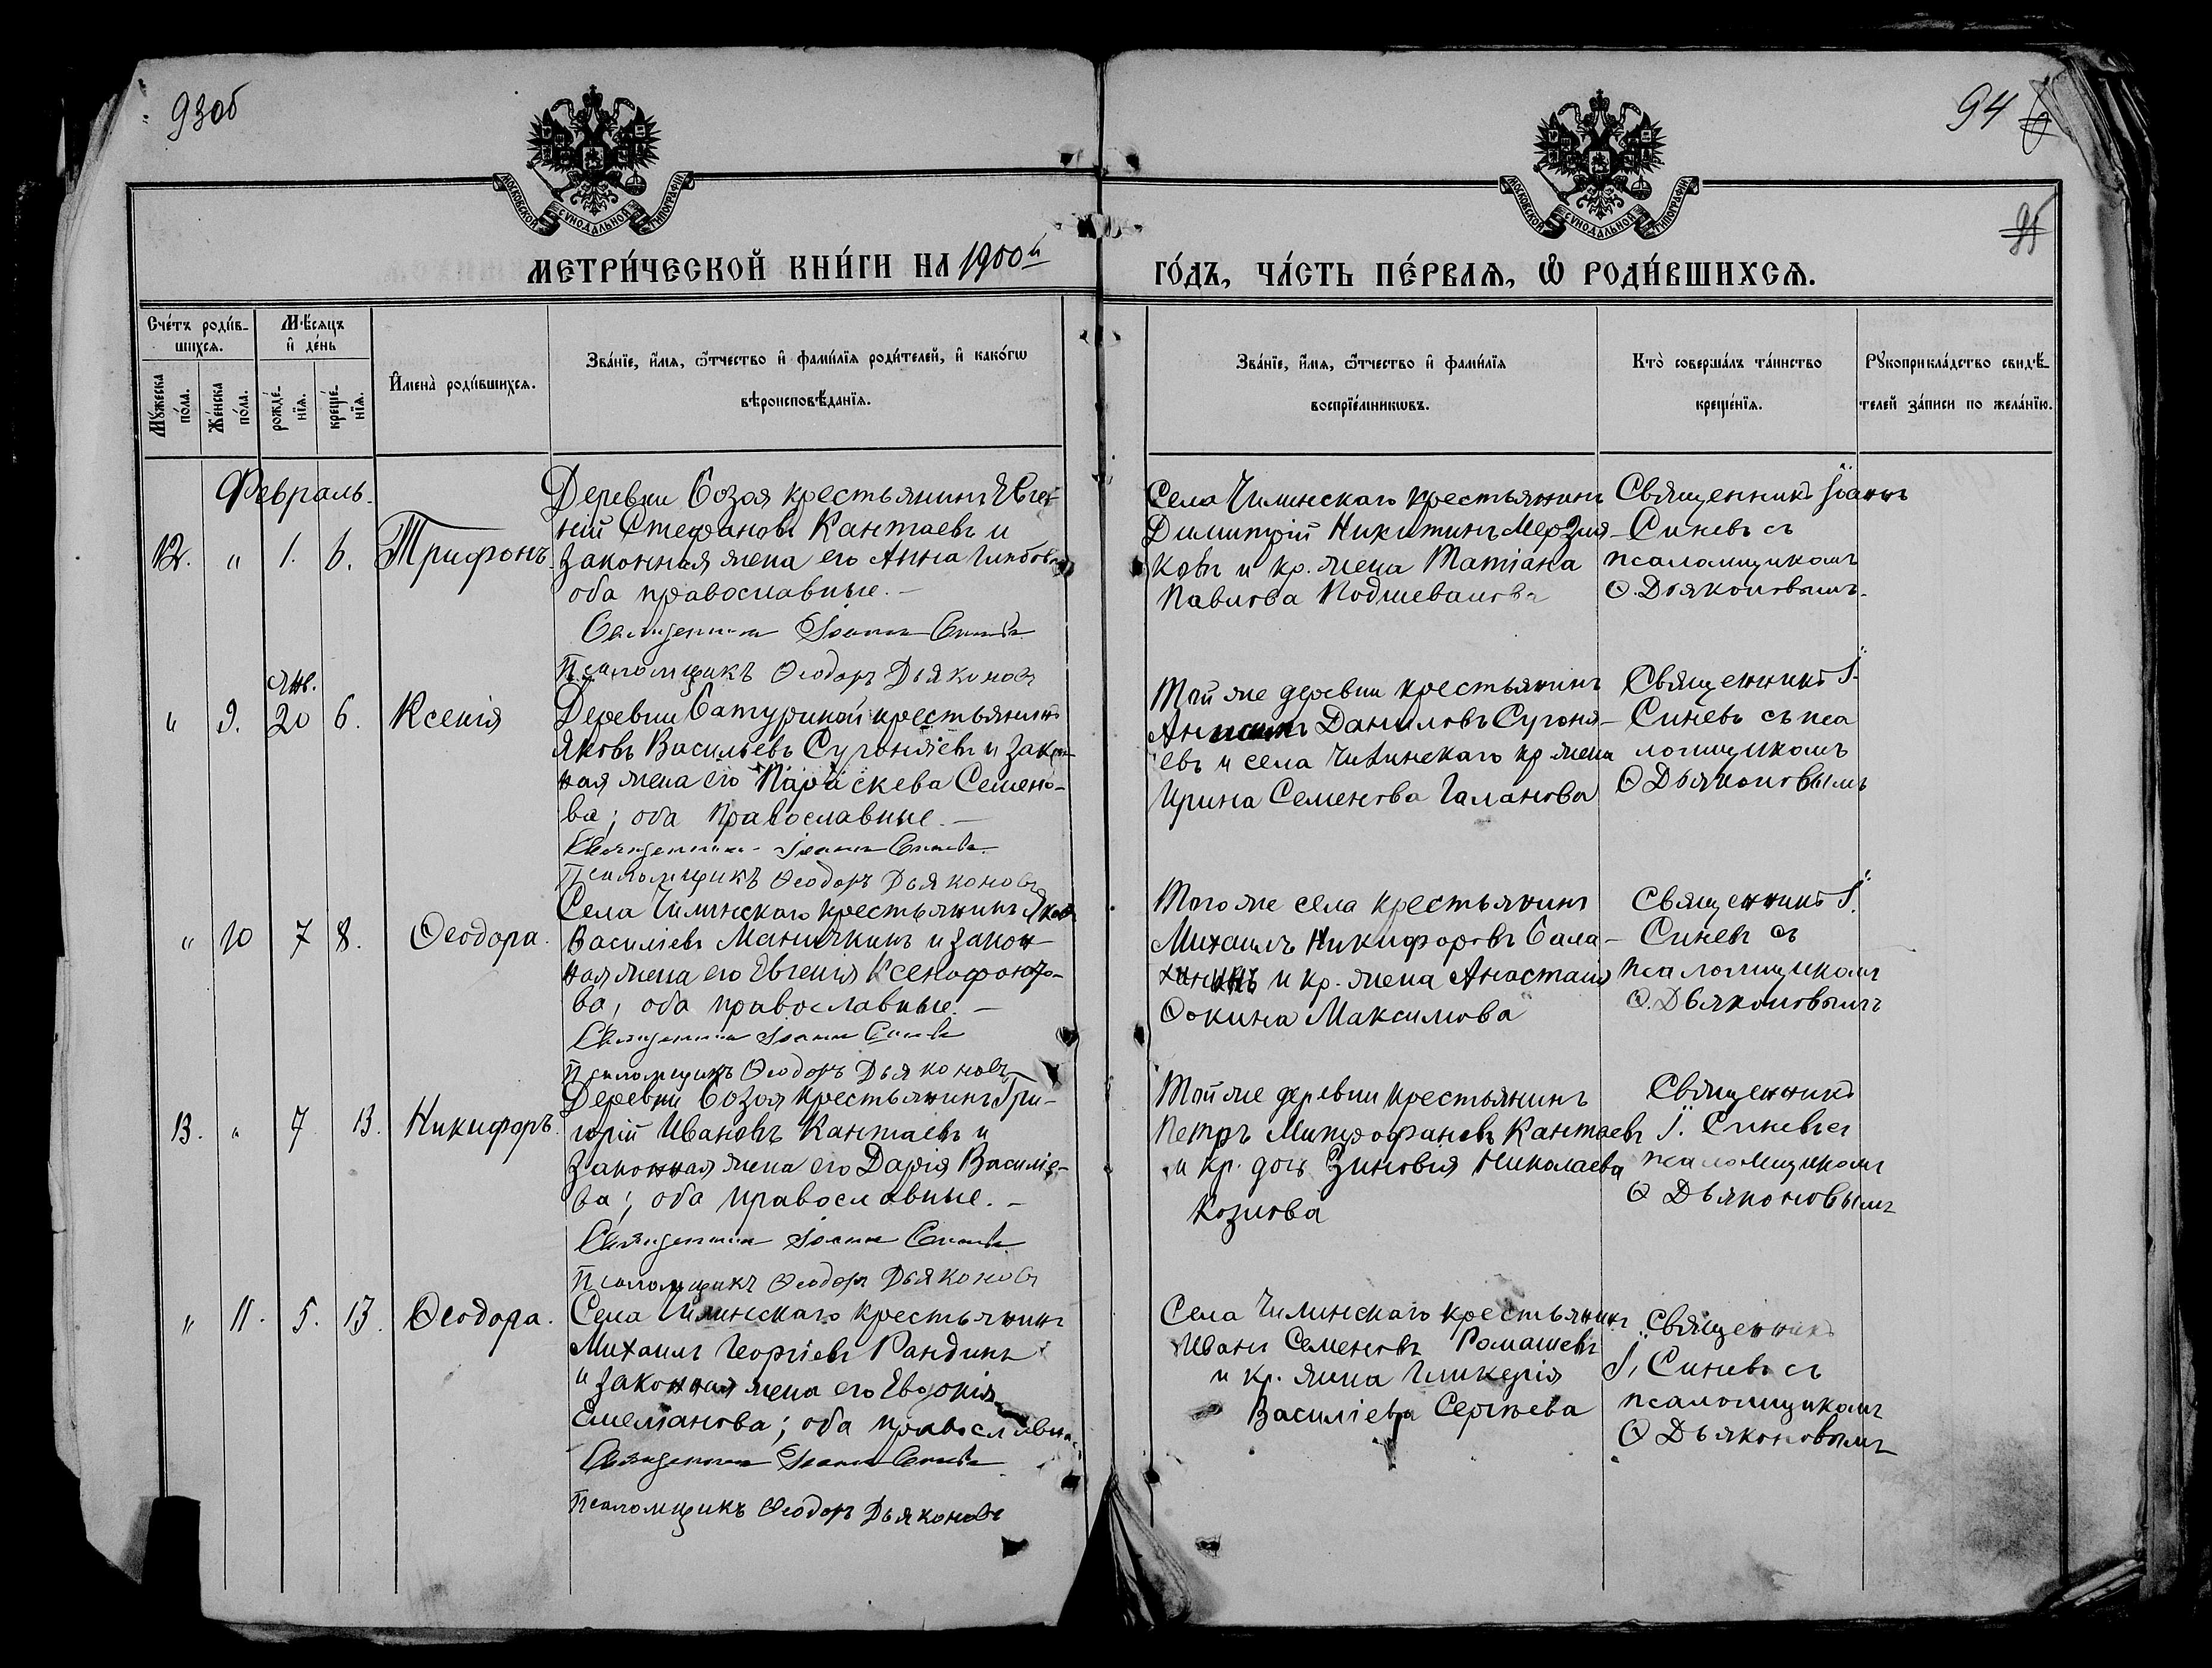 93об
94
МОСКОВСКОЙ СѴНОДАЛЬНОЙ ТИПОГРАФІИ
МОСКОВСКОЙ СѴНОДАЛЬНОЙ ТИПОГРАФІИ
МЕТРИ́ЧЕСКОЙ КНИ́ГИ НА 1900й
ГО́ДЪ, ЧА́СТЬ ПЕ́РВАѦ, Ѡ҆ РОДИ́ВШИХСѦ.
Сче́тъ роди́в-
шихсѧ.
Мѣ́сѧцъ
и҆ де́нь
Мꙋ́жеска
по́ла.
Же́нска
по́ла.
рожде́-
нїѧ.
креще́-
нїѧ.
И҆мена̀ роди́вшихсѧ.
Зва́нїе, и҆́мѧ, ѻ҆́тчество и҆ фами́лїѧ роди́телей, и҆ како́гѡ
вѣроисповѣ́данїѧ.
Зва́нїе, и҆́мѧ, ѻ҆́тчество и҆ фами́лїѧ
воспрїе́мникѡвъ.
Кто̀ соверша́лъ та́инство
креще́нїѧ.
Рꙋкоприкла́дство свидѣ́-
телей за́писи по жела́нїю.
Февраль.
12. " 1. 6. Трифонъ.
Деревни Бозоя крестьянинъ Евге-
ній Стефановъ Кантаевъ и
законная жена его Анна Глѣбова
оба православные. —
Священникъ Іоаннъ Синевъ
Псаломщикъ Ѳеодоръ Дьяконовъ
Села Чилинскаго крестьянинъ
Димитрій Никитинъ Мерзля-
ковъ и кр. жена Татіана
Павлова Подшевалова
Священникъ Іоаннъ
Синевъ съ
псаломщикомъ
Ѳ. Дьяконовымъ.
Янв.
" 9. 20 6. Ксенія
Деревни Батуриной крестьянинъ
Яковъ Васильевъ Сугоняевъ и закон-
ная жена его Параскева Семено-
ва; оба православные. —
Священникъ Іоаннъ Синевъ
Псаломщикъ Ѳеодоръ Дьяконовъ
Той же деревни крестьянинъ
Даниловъ Сугоня-
евъ и села Чилинскаго кр жена
Ирина Семенова Галанова
Священникъ І.
Синевъ съ пса
ломщикомъ
Ѳ Дьяконовымъ
" 10 7 8. Ѳеодора.
Села Чилинскаго крестьянинъ Яковъ
Василіевъ Маничкинъ и закон-
ная жена его Евгенія Ксенофонто-
ва, оба православные. —
Священникъ Іоаннъ Синевъ
Псаломщикъ Ѳеодоръ Дьяконовъ
Того же села крестьянинъ
Михаилъ Никифоровъ Бала-
хнинъ и кр. жена Анастасія
Ѳокина Максимова
Священникъ І.
Синевъ съ
псаломщикомъ
Ѳ. Дьяконовымъ
13. " 7 13. Никифоръ.
Деревни Бозоя крестьянинъ Гри-
горій Ивановъ Кантаевъ и
законная жена его Дарія Василіе-
ва; оба православные. —
Священникъ Іоаннъ Синевъ
Псаломщикъ Ѳеодоръ Дьяконовъ
Той же деревни крестьянинъ
Петръ Митрофановъ Кантаевъ
и кр. дочь Зиновія Николаева
Козлова
Священникъ
І. Синевъ съ
псаломщикомъ
Ѳ Дьяконовымъ
" 11. 5. 13. Ѳеодора.
Села Чилинскаго крестьянинъ
Михаилъ Георгіевъ Рандинъ
и законная жена его Евдокія
Емеліанова; оба православны
Священникъ Іоаннъ Синевъ
Псаломщикъ Ѳеодоръ Дьяконовъ
Села Чилинскаго крестьянинъ
Иванъ Семеновъ Ромашевъ
и кр. жена Гликерія
Василіева Сергѣева
Священникъ
І. Синевъ съ
псаломщикомъ
Ѳ Дьяконовымъ